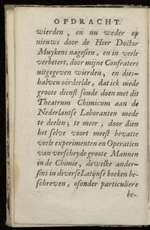 OPDRACHT.
wierden, en nu weder op
nieuws door de Heer Doctor
Muykens nagesien, en in veele
verbetert, door mijne Confraters
uitgegeven wierden, en dies-
halven oordeelde, dat ick mede
groote dienst soude doen met dit
Theatrum Chimicum aan de
Nederlantse Laboranten mede
te deelen; te meer, door dien
het selve voort meest bevatte
veele experimenten en Operatien
van verscheyde groote Mannen
in de Chimie, dewelke ander-
sins in diverse Latijnse boeken be-
schreven, of onder particuliere
be-